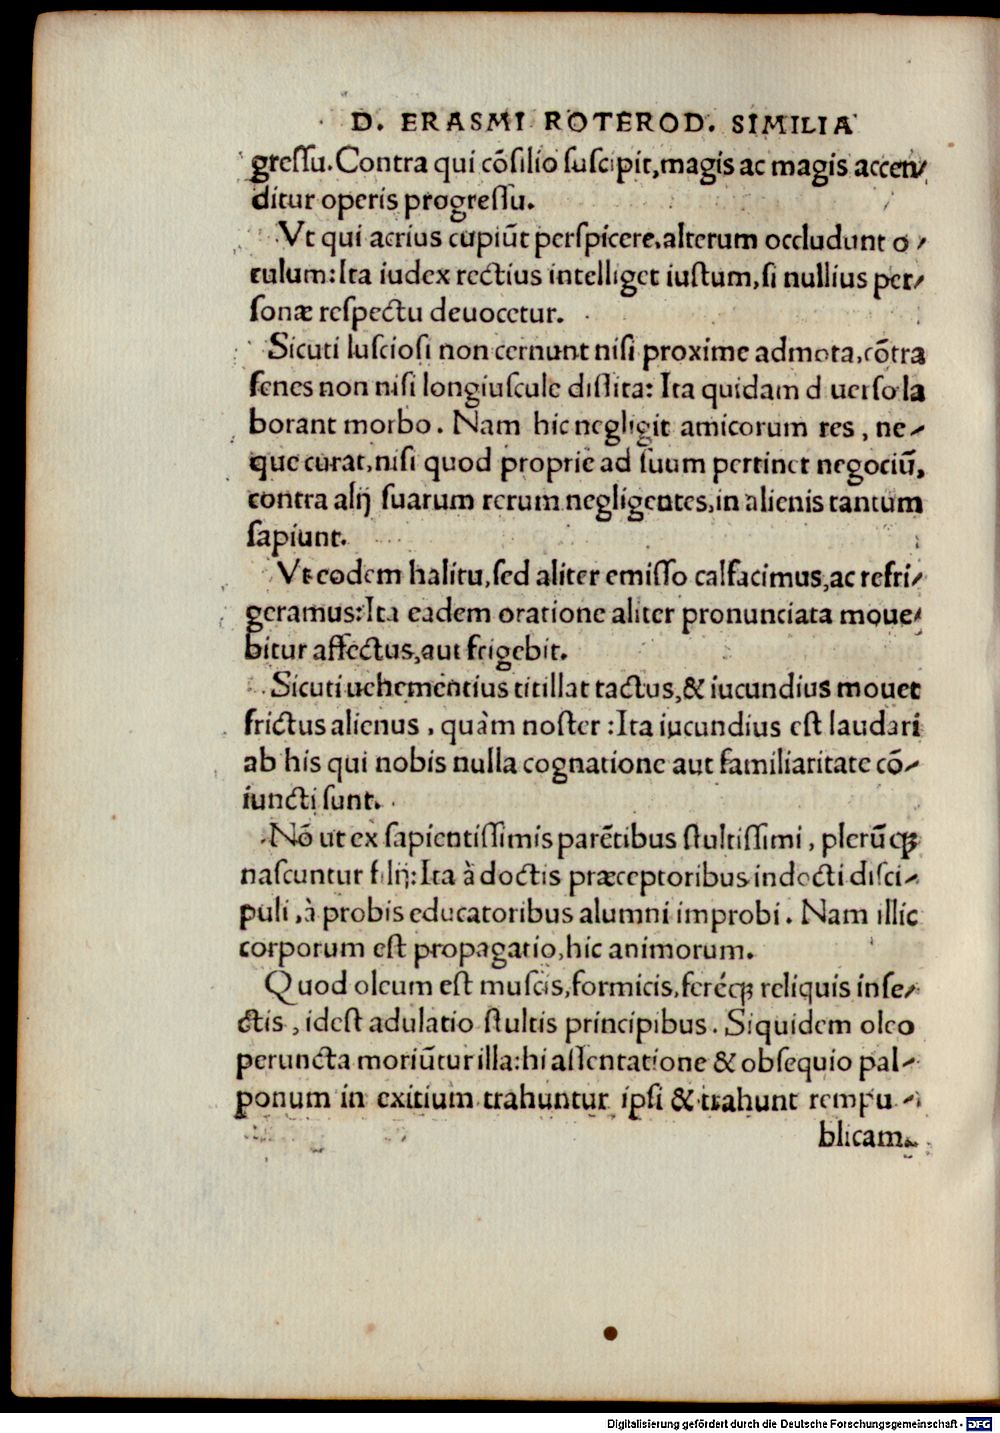 D. ERASMI ROTEROD. SIMILIA
greſſu. Contra qui cõſilio ſuſcipit, magis ac magis accen⸗
ditur operis progreſſu.
Vt qui acrius cupiũt perſpicere, alterum occludunt o⸗
culum: Ita iudex rectius intelliget iuſtum, ſi nullius per⸗
ſonæ reſpectu deuocetur.
Sicuti luſcioſi non cernunt niſi proxime admota, cõtra
ſenes non niſi longiuſcule diſſita: Ita quidam d uerſo la
borant morbo. Nam hic negligit amicorum res, ne⸗
que curat, niſi quod proprie ad ſuum pertinet negociũ,
contra alij ſuarum rerum negligentes, in alienis tantum
ſapiunt.
Vt eodem halitu, ſed aliter emiſſo calfacimus, ac refri⸗
geramus: Ita eadem oratione aliter pronunciata moue⸗
bitur affectus, aut frigebit.
Sicuti uehementius titillat tactus, & iucundius mouet
frictus alienus, quàm noſter: Ita iucundius eſt laudari
ab his qui nobis nulla cognatione aut familiaritate cõ⸗
iuncti ſunt.
Nõ ut ex ſapientiſſimis parẽtibus ſtultiſſimi, plerũq;
naſcuntur filij: Ita à doctis præceptoribus indocti diſci⸗
puli, à probis educatoribus alumni improbi. Nam illic
corporum eſt propagatio, hic animorum.
Quod oleum eſt muſcis, formicis, feréq; reliquis inſe⸗
ctis, id eſt adulatio ſtultis principibus. Siquidem oleo
peruncta moriũtur illa: hi aſſentatione & obſequio pal⸗
ponum in exitium trahuntur ipſi & trahunt rempu⸗
blicam.
Digitalisierung gefördert durch die Deutsche Forschungsgemeinschaft - DFG